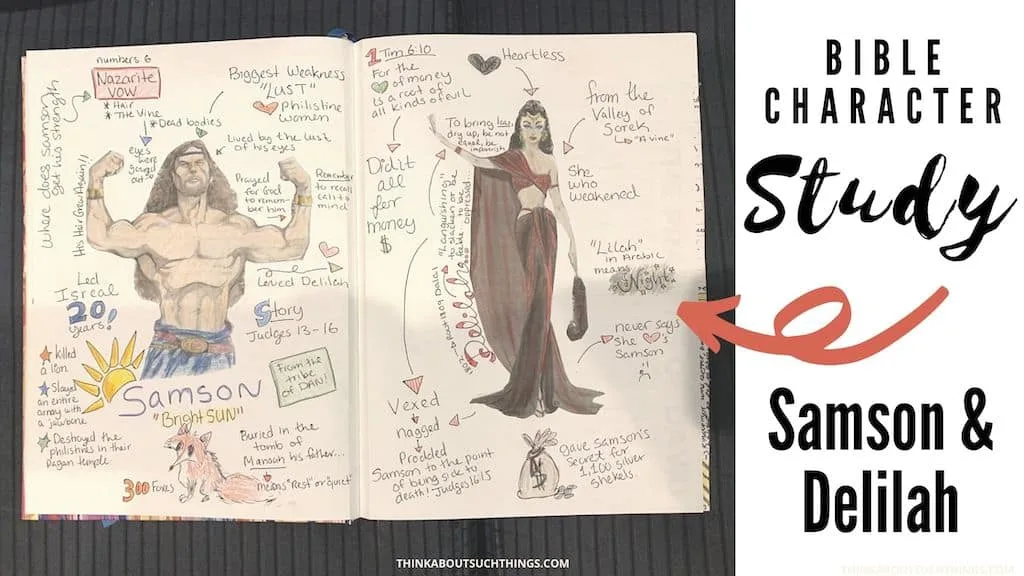 numbers 6
Nazarite
VOW
* Hair
* The Vine
* Dead bodies
where does samson
get his strength
His Hair Grew Again!!
eyes
were
gouged
out
Biggest Weakness
"LUST"
Philistine
women
Lived by the lust
of his eyes
Prayed
for God
to remem-
ber him
Remember
to recall
call to
mind
Loved Delilah
Led
Isreal
20
years!
Story
Judges 13-16
killed
a lion
Slayed
an entire
army with
a jawbone
Destroyed the
philistines in their
Pagan temple
SAMSON
"Bright SUN"
From the
tribe
of DAN!
300 Foxes
Buried in the
tomb of
Manoah his father...
means "Rest" or "Quiet"
1 Tim 6:10
For the
of money
is a root of
all kinds of evil
Did it
all
for
money
$
Heartless
To bring low,
dry up, be not
equal, be
impoverish
"Languishing"
to slacken or be
feable to be
oppressed...
Delilah
from the
Valley of
Sorek
"A vine"
She
who
weakened
"Lilah"
in Arabic
means
Night
never says
She
's
Samson
Vexed
nagged
Prodded
Samson to the point
of being sick to
death! Judges 16:15
gave Samson's
secret for
1,100 silver
shekels.
$
BIBLE
CHARACTER
Study
Samson &
Delilah
THINKABOUTSUCHTHINGS.COM
THINKABOUTSUCHTHINGS.COM